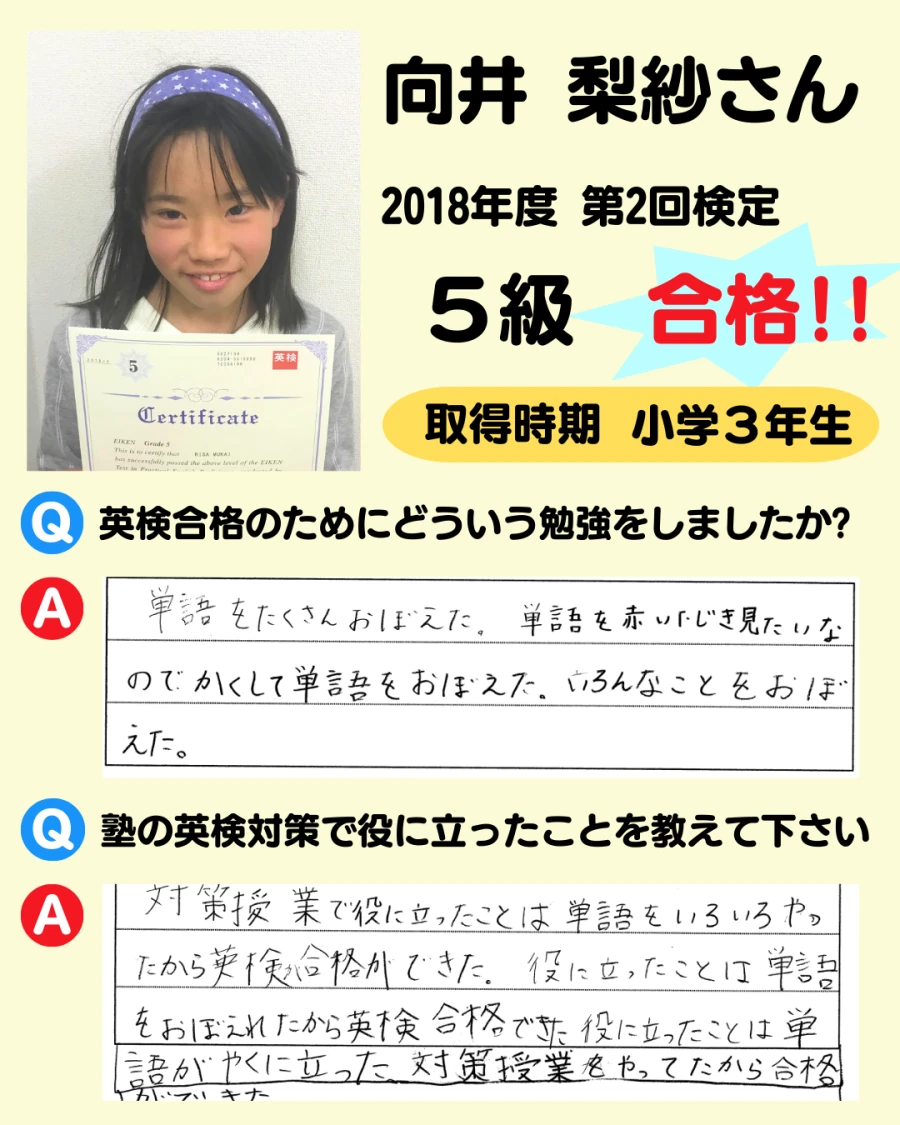 向井 梨紗さん
2018年度 第2回検定
5級 合格!!
取得時期 小学3年生
5
英検
Certificate
EIKEN Grade 5
This is to certify that RISA MUKAI
has successfully passed the above level of the EIKEN
Q 英検合格のためにどういう勉強をしましたか?
A 単語をたくさんおぼえた。単語を赤いしじき見たいな
のでかくして単語をおぼえた。いろんなことをおぼ
えた。
Q 塾の英検対策で役に立ったことを教えて下さい
A 対策授業で役に立ったことは単語をいろいろやっ
たから英検が合格ができた。役に立ったことは単語
をおぼえれたから英検合格できた役に立ったことは単
語がやくに立った。対策授業をやってたから合格
ができた